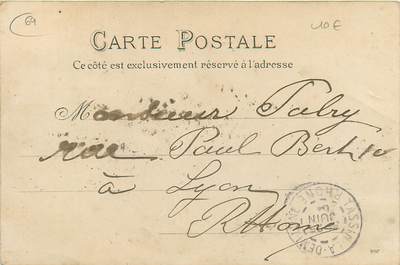 69
10 E
CARTE POSTALE
Ce côté est exclusivement réservé à l'adresse
Monsieur Fabry
rue Paul Bert 10
à Lyon
Rhône
TASSIN-LA-DEMI-LUNE
RHONE
JUIN